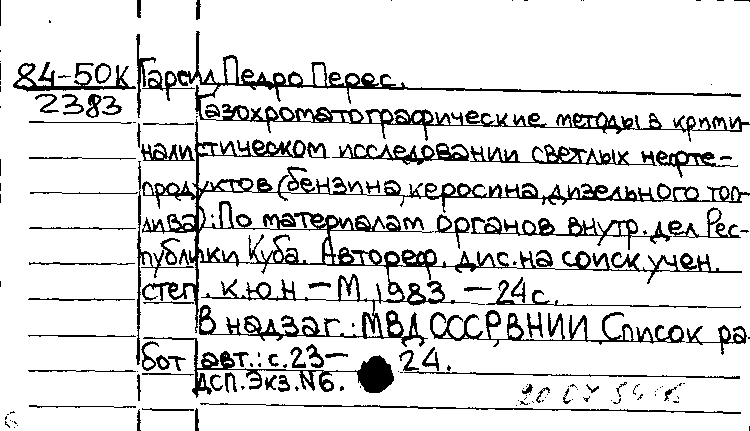 84-50К Гарсил, Педро Перес.
2383 Газохроматографические методы в крими-
налистическом исследовании светлых нефте-
продуктов (бензина, керосина, дизельного топ-
лива): По материалам органов внутр. дел Рес-
публики Куба. Автореф. дис. на соиск. учен.
степ. к.ю.н. - М., 1983. - 24 с.
В надзаг.: МВД СССР, ВНИИ. Список ра-
бот авт.: с. 23- 24.
ДСП. Экз. N6.